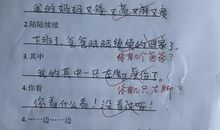 我的妈妈又矮又高又胖又瘦
2.陆陆续续
下班了,爸爸陆陆续续的回家了。
你有几个爸爸?
3.其中
我的其中一只左脚受伤了。
你有几只左脚?
4.你看
你看什么看!没看过啊!
4.……一边……一边